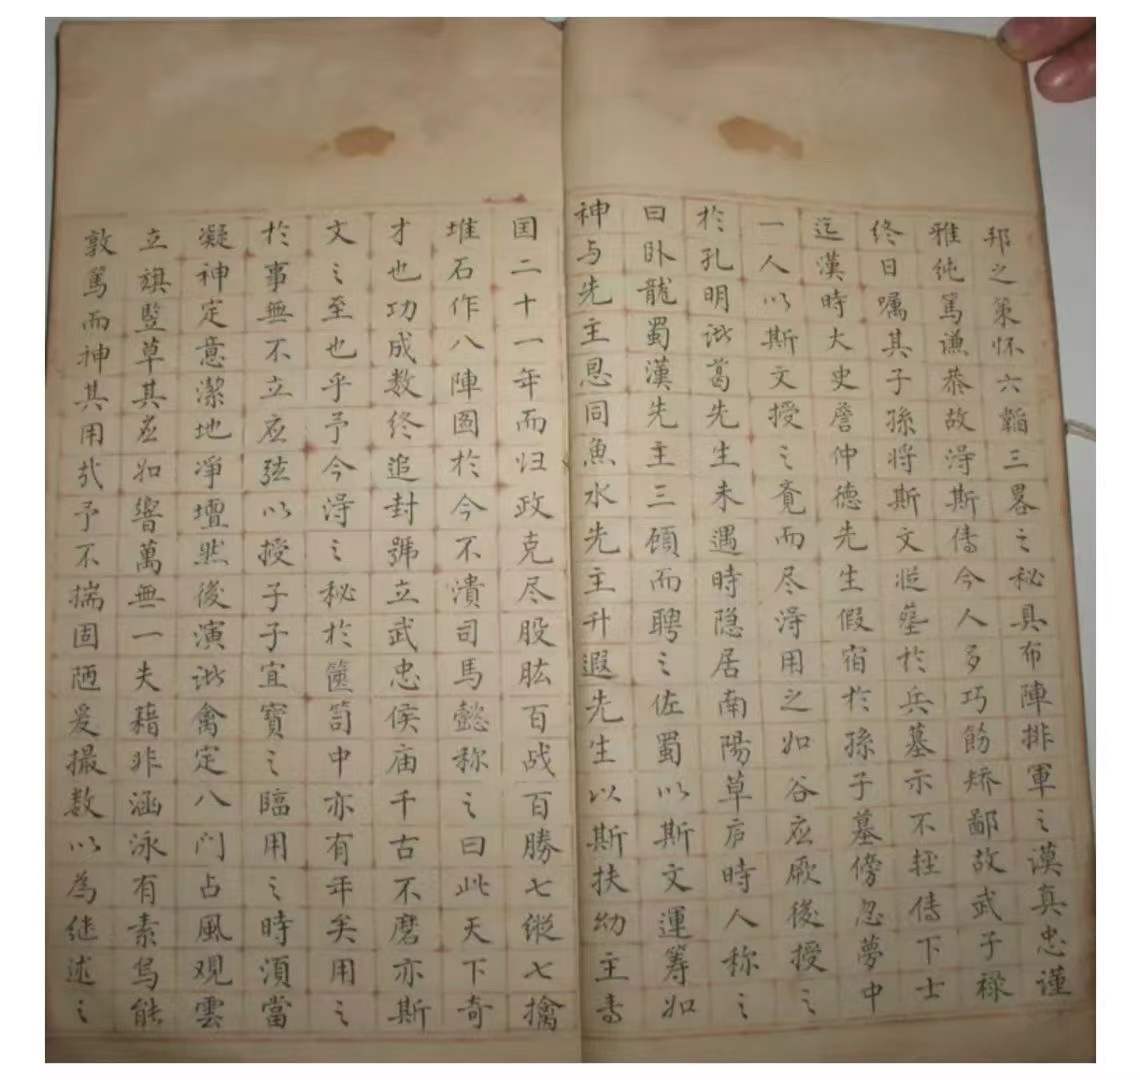 邦之策怀六韜三畧之秘具布陣排軍之謨真忠謹
雅纯篤谦恭故淂斯傳今人多巧餙矫鄙故武子禄
终日嘱其子孫将斯文従塟於兵墓示不轻傳下士
迄漢時大史詹仲德先生假宿於孫子墓傍忽夢中
一人以斯文授之竟而尽淂用之如谷应厥後授之
於孔明诸葛先生未遇時隐居南陽草庐時人称之
曰卧龍蜀漢先主三顾而聘之佐蜀以斯文運筹如
神与先主恩同魚水先主升遐先生以斯扶幼主專
囯二十一年而归政克尽股肱百战百勝七縱七擒
堆石作八陣图於今不潰司馬懿称之曰此天下奇
才也功成数终追封號立武忠侯庙千古不磨亦斯
文之至也乎予今淂之秘於篋笥中亦有年矣用之
於事無不立应弦以授子子宜寶之臨用之時湏當
凝神定意潔地凈壇然後演诸禽定八门占風观雲
立旗竪草其应如響萬無一失藉非涵泳有素烏能
敦篤而神其用弐予不揣固陋爰撮数以為继述之